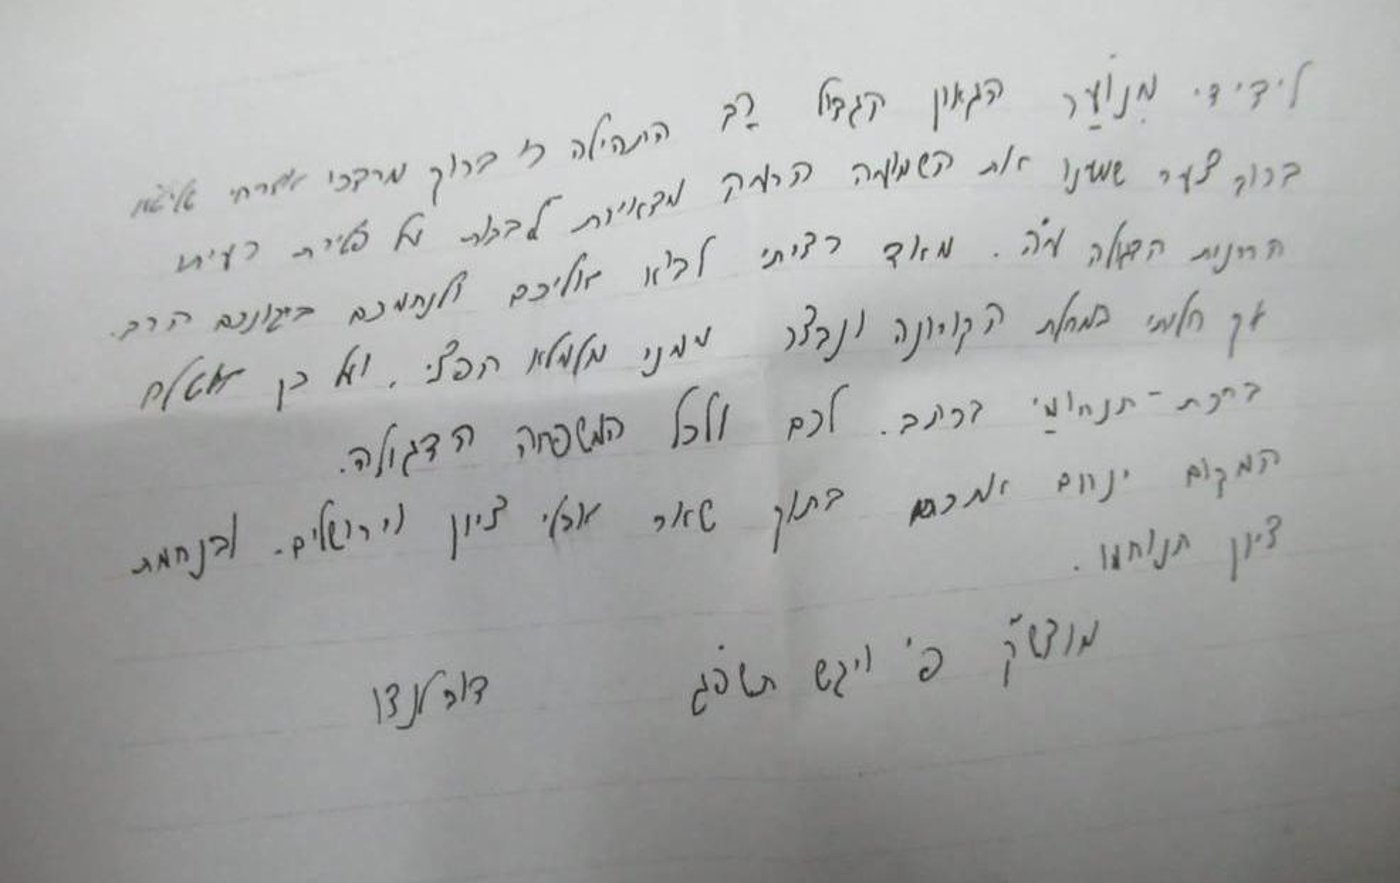 לידידי מִנוֹעַר הגאון הגדול רַב התהילה ר' ברוך מרדכי אזרחי שליט"א
ברוב צער שמענו את השמועה הרעה על פטירת רעיתו
הרבנית הדגולה ע"ה. מאוד רציתי לבוא אליכם ולנחמכם ביגונכם הרב.
אך חליתי במחלת הקורונה ונבצר ממני מלמלא חפצי. ועל כן אשלח
ברכת-תנחומַי בכתב. לכם ולכל המשפחה הדגולה.
המקום ינחם אתכם בתוך שאר אבלי ציון וירושלים. ובנחמת
ציון תנוחמו.
מוצש"ק פ' ויגש תשפ"ג דוב לנדו